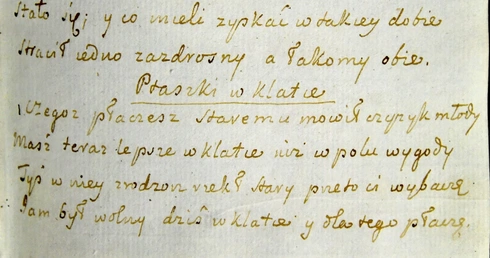 Stało się; y co mieli zyskać w takiey dobie
Stracił iedno zazdrosny a łakomy obie.
Ptaszki w klatce
Czegoż płaczesz staremu mówił czyżyk młody
Masz teraz lepsze w klatce niż w polu wygody
Tyś w niey zrodzon rzekł stary przeto ci wybaczę
Jam był wolny dziś w klatce y dla tego płaczę.